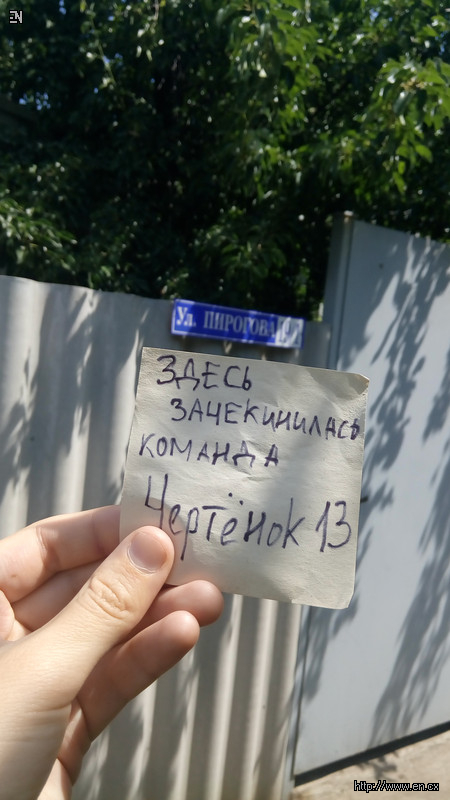 EN
Ул. ПИРОГОВА
ЗДЕСЬ
ЗАЧЕКИНИЛАСЬ
КОМАНДА
Чертёнок 13
http://www.en.cx